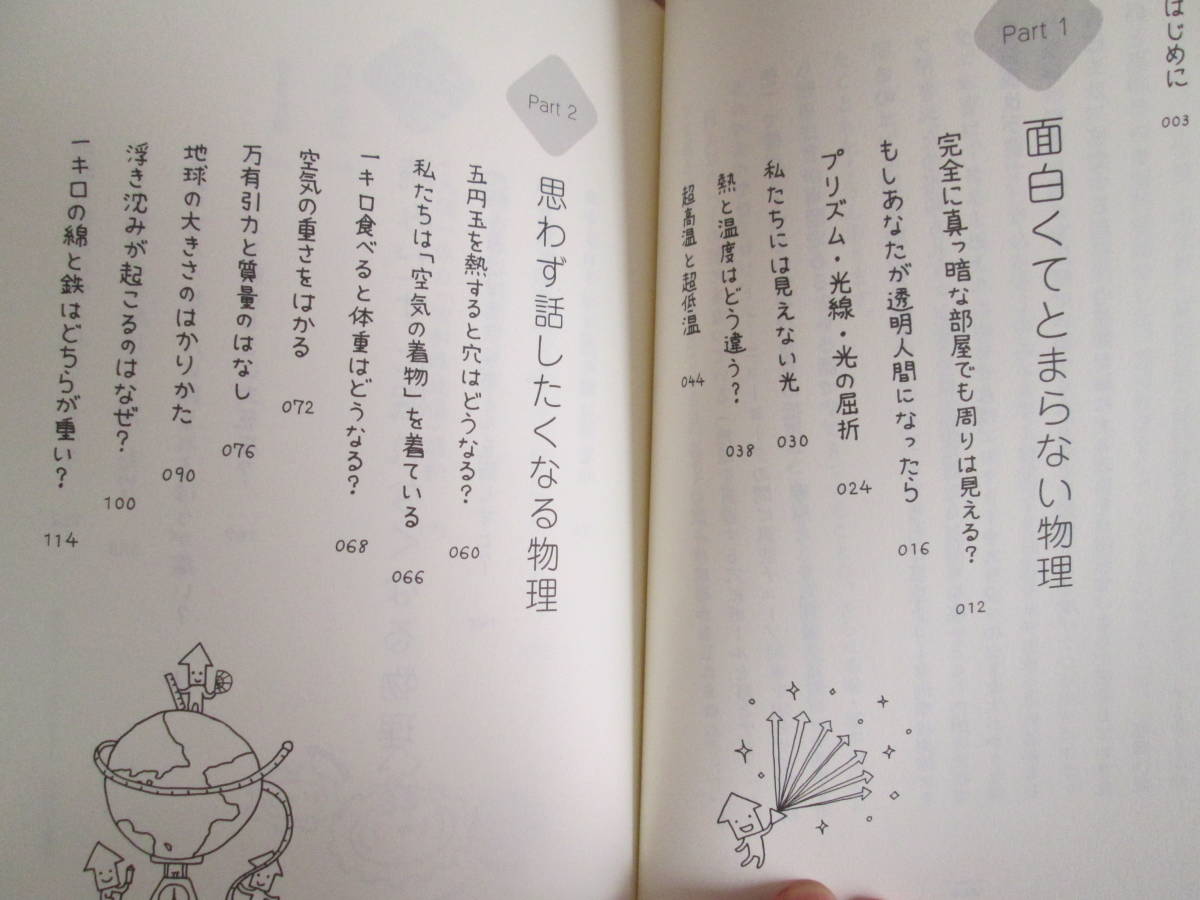 はじめに 003
Part 1
面白くてとまらない物理
完全に真っ暗な部屋でも周りは見える? 012
もしあなたが透明人間になったら 016
プリズム・光線・光の屈折 024
私たちには見えない光 030
熱と温度はどう違う? 038
超高温と超低温 044
Part 2
思わず話したくなる物理
五円玉を熱すると穴はどうなる? 060
私たちは「空気の着物」を着ている 066
一キロ食べると体重はどうなる? 068
空気の重さをはかる 072
万有引力と質量のはなし 076
地球の大きさのはかりかた 090
浮き沈みが起こるのはなぜ? 100
一キロの綿と鉄はどちらが重い? 114